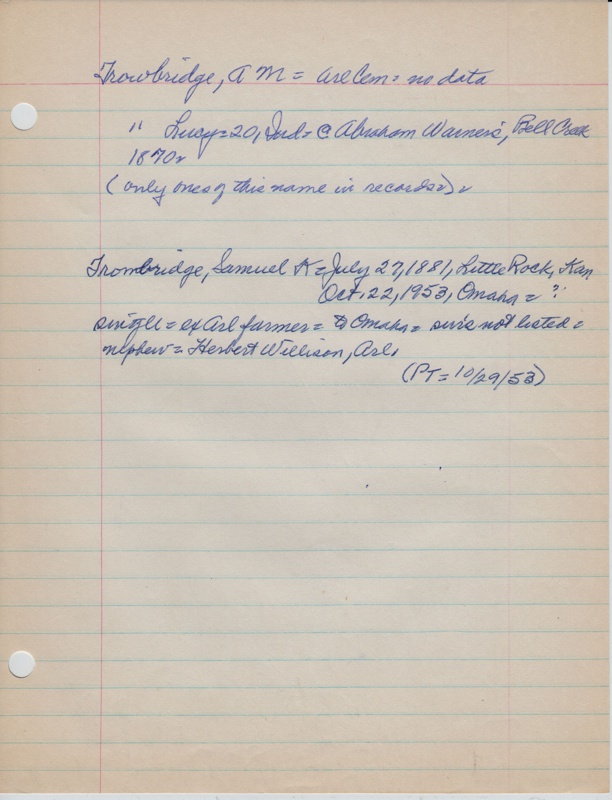 Trowbridge, A M = Arl Cem = no data
" Lucy = 20, Ind = @ Abraham Warner's, Bell Creek
1870
(only ones of this name in records)
Trombridge, Samuel K = July 27, 1881, Little Rock, Kan
Oct. 22, 1953, Omaha = ?
single = ex Arl farmer = to Omaha = surv's not listed =
nephew = Herbert Willison, Arl.
(PT = 10/29/53)